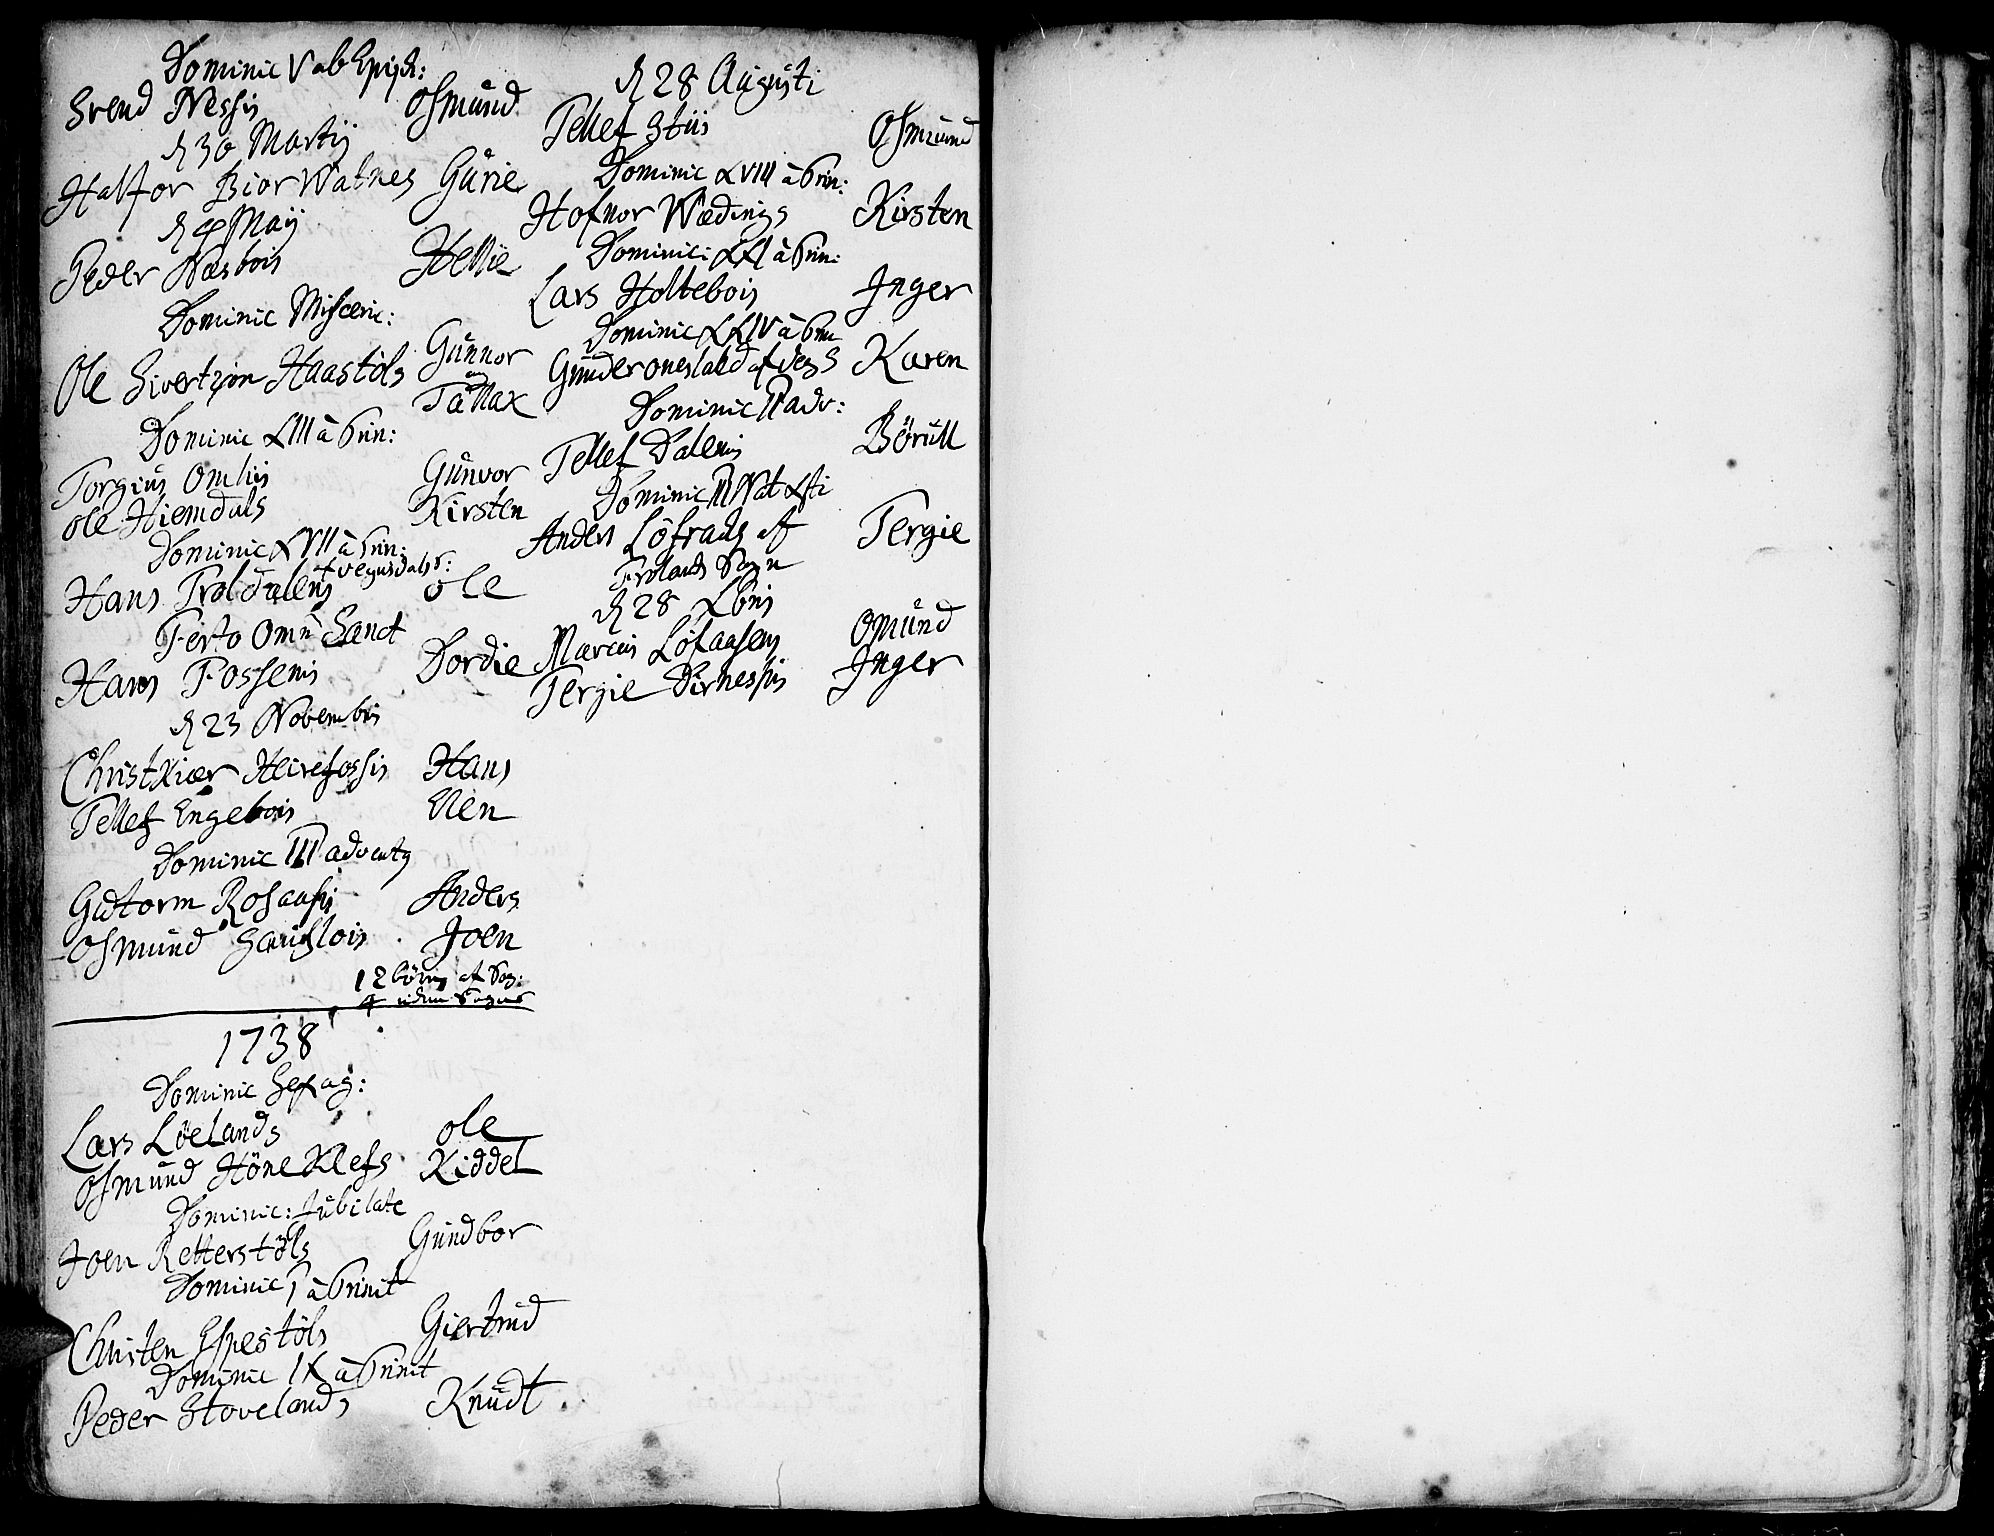 Dominic V ab Epiph:
Svend Nessis Osmund
d 30 Martij
Halfor BiorWatnes Gurie
d 4 Maij
Peder Næsbois Hellie
Dominic Misceric:
Ole Sivertzøn Haastöls Gunnor
og
Tallax
Dominic XIII à Trin:
Torgius Omliis Gunvor
Ole Hiemdals Kirsten
Dominic XVII à Trin:
Hans Troldalens af Vegusdals S: Ole
Festo Omn Sanct
Hans Fossenis Dordie
d 23 Novembris
Christ Kiær Heirefossis Hans
Tellef Engebois Elen
Dominic III adventg
Gutorm Rosaasis Anders
Osmund Joen
12 börn af Sog:
4 uden Sogns
1738
Dominic Sexag:
Lars Löelands Ole
Osmund HöneKlefs Kiddel
Dominic: Jubilate
Joen Retterstöls Gundbor
Dominic I à Trinit
Christen Espestöls Giertrud
Dominic IX à Trinit
Peder Stovelands Knudt
d 28 Augusti
Tellef Stiis Osmund
Dominic XVIII à Trin:
Hofnor Wædings Kirsten
Dominic: XXI à Trin:
Lars Holtebois Inger
Dominic XXIV à Trin
Gunder oneslald af Karen
Dominic II adv:
Tellef Dalenis Börull
Dominic Nat Xsti
Anders Löfrads af Tergie
Frolands Sogn
d 28 Xbris
Marcus Löfaasens Omund
Tergie Birnessis Inger